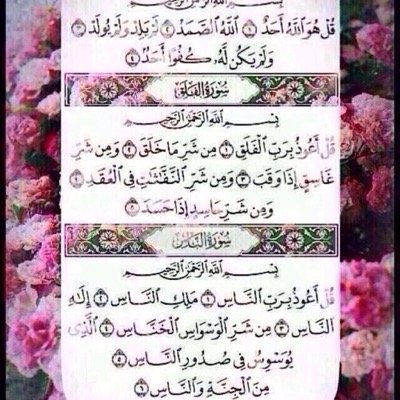 بِسْمِ اللَّهِ الرَّحْمَٰنِ الرَّحِيمِ
قُلْ هُوَ اللَّهُ أَحَدٌ ١ اللَّهُ الصَّمَدُ ٢ لَمْ يَلِدْ وَلَمْ يُولَدْ ٣
وَلَمْ يَكُن لَّهُ كُفُوًا أَحَدٌ ٤
سُورَةُ الْفَلَقِ
بِسْمِ اللَّهِ الرَّحْمَٰنِ الرَّحِيمِ
قُلْ أَعُوذُ بِرَبِّ الْفَلَقِ ١ مِن شَرِّ مَا خَلَقَ ٢ وَمِن شَرِّ
غَاسِقٍ إِذَا وَقَبَ ٣ وَمِن شَرِّ النَّفَّاثَاتِ فِي الْعُقَدِ ٤
وَمِن شَرِّ حَاسِدٍ إِذَا حَسَدَ ٥
سُورَةُ النَّاسِ
بِسْمِ اللَّهِ الرَّحْمَٰنِ الرَّحِيمِ
قُلْ أَعُوذُ بِرَبِّ النَّاسِ ١ مَلِكِ النَّاسِ ٢ إِلَٰهِ
النَّاسِ ٣ مِن شَرِّ الْوَسْوَاسِ الْخَنَّاسِ ٤ الَّذِي
يُوَسْوِسُ فِي صُدُورِ النَّاسِ ٥
مِنَ الْجِنَّةِ وَالنَّاسِ ٦